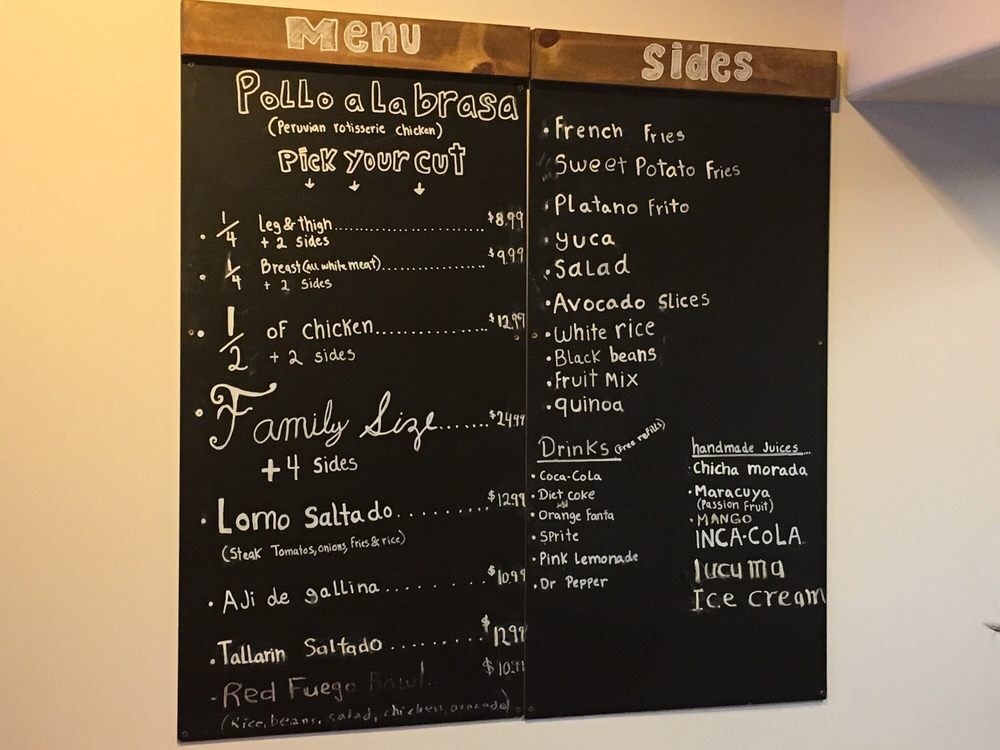 Menu
Pollo a La brasa
(Peruvian rotisserie chicken)
Pick your cut
• 1/4 Leg & thigh.......................... $8.99
+ 2 Sides
• 1/4 Breast (All white meat)................. $9.99
+ 2 Sides
• 1/2 of chicken................. $12.99
+ 2 sides
• Family Size....... $24.99
+ 4 Sides
• Lomo Saltado......... $12.99
(Steak Tomatos, onions, fries & rice)
• Aji de gallina......... $10.99
• Tallarin Saltado......... $12.99
- Red Fuego Bowl...
(Rice, beans, salad, chicken, avocado)
Sides
• French Fries
Sweet Potato Fries
• Platano Frito
• Yuca
• Salad
• Avocado Slices
• White rice
• Black beans
• Fruit Mix
• quinoa
Drinks (Free refills)
• Coca-Cola
• Diet coke
• Orange Fanta
• Sprite
• Pink Lemonade
• Dr Pepper
handmade Juices
• Chicha morada
• Maracuya
(Passion Fruit)
• MANGO
INCA-COLA
lucuma
Ice cream